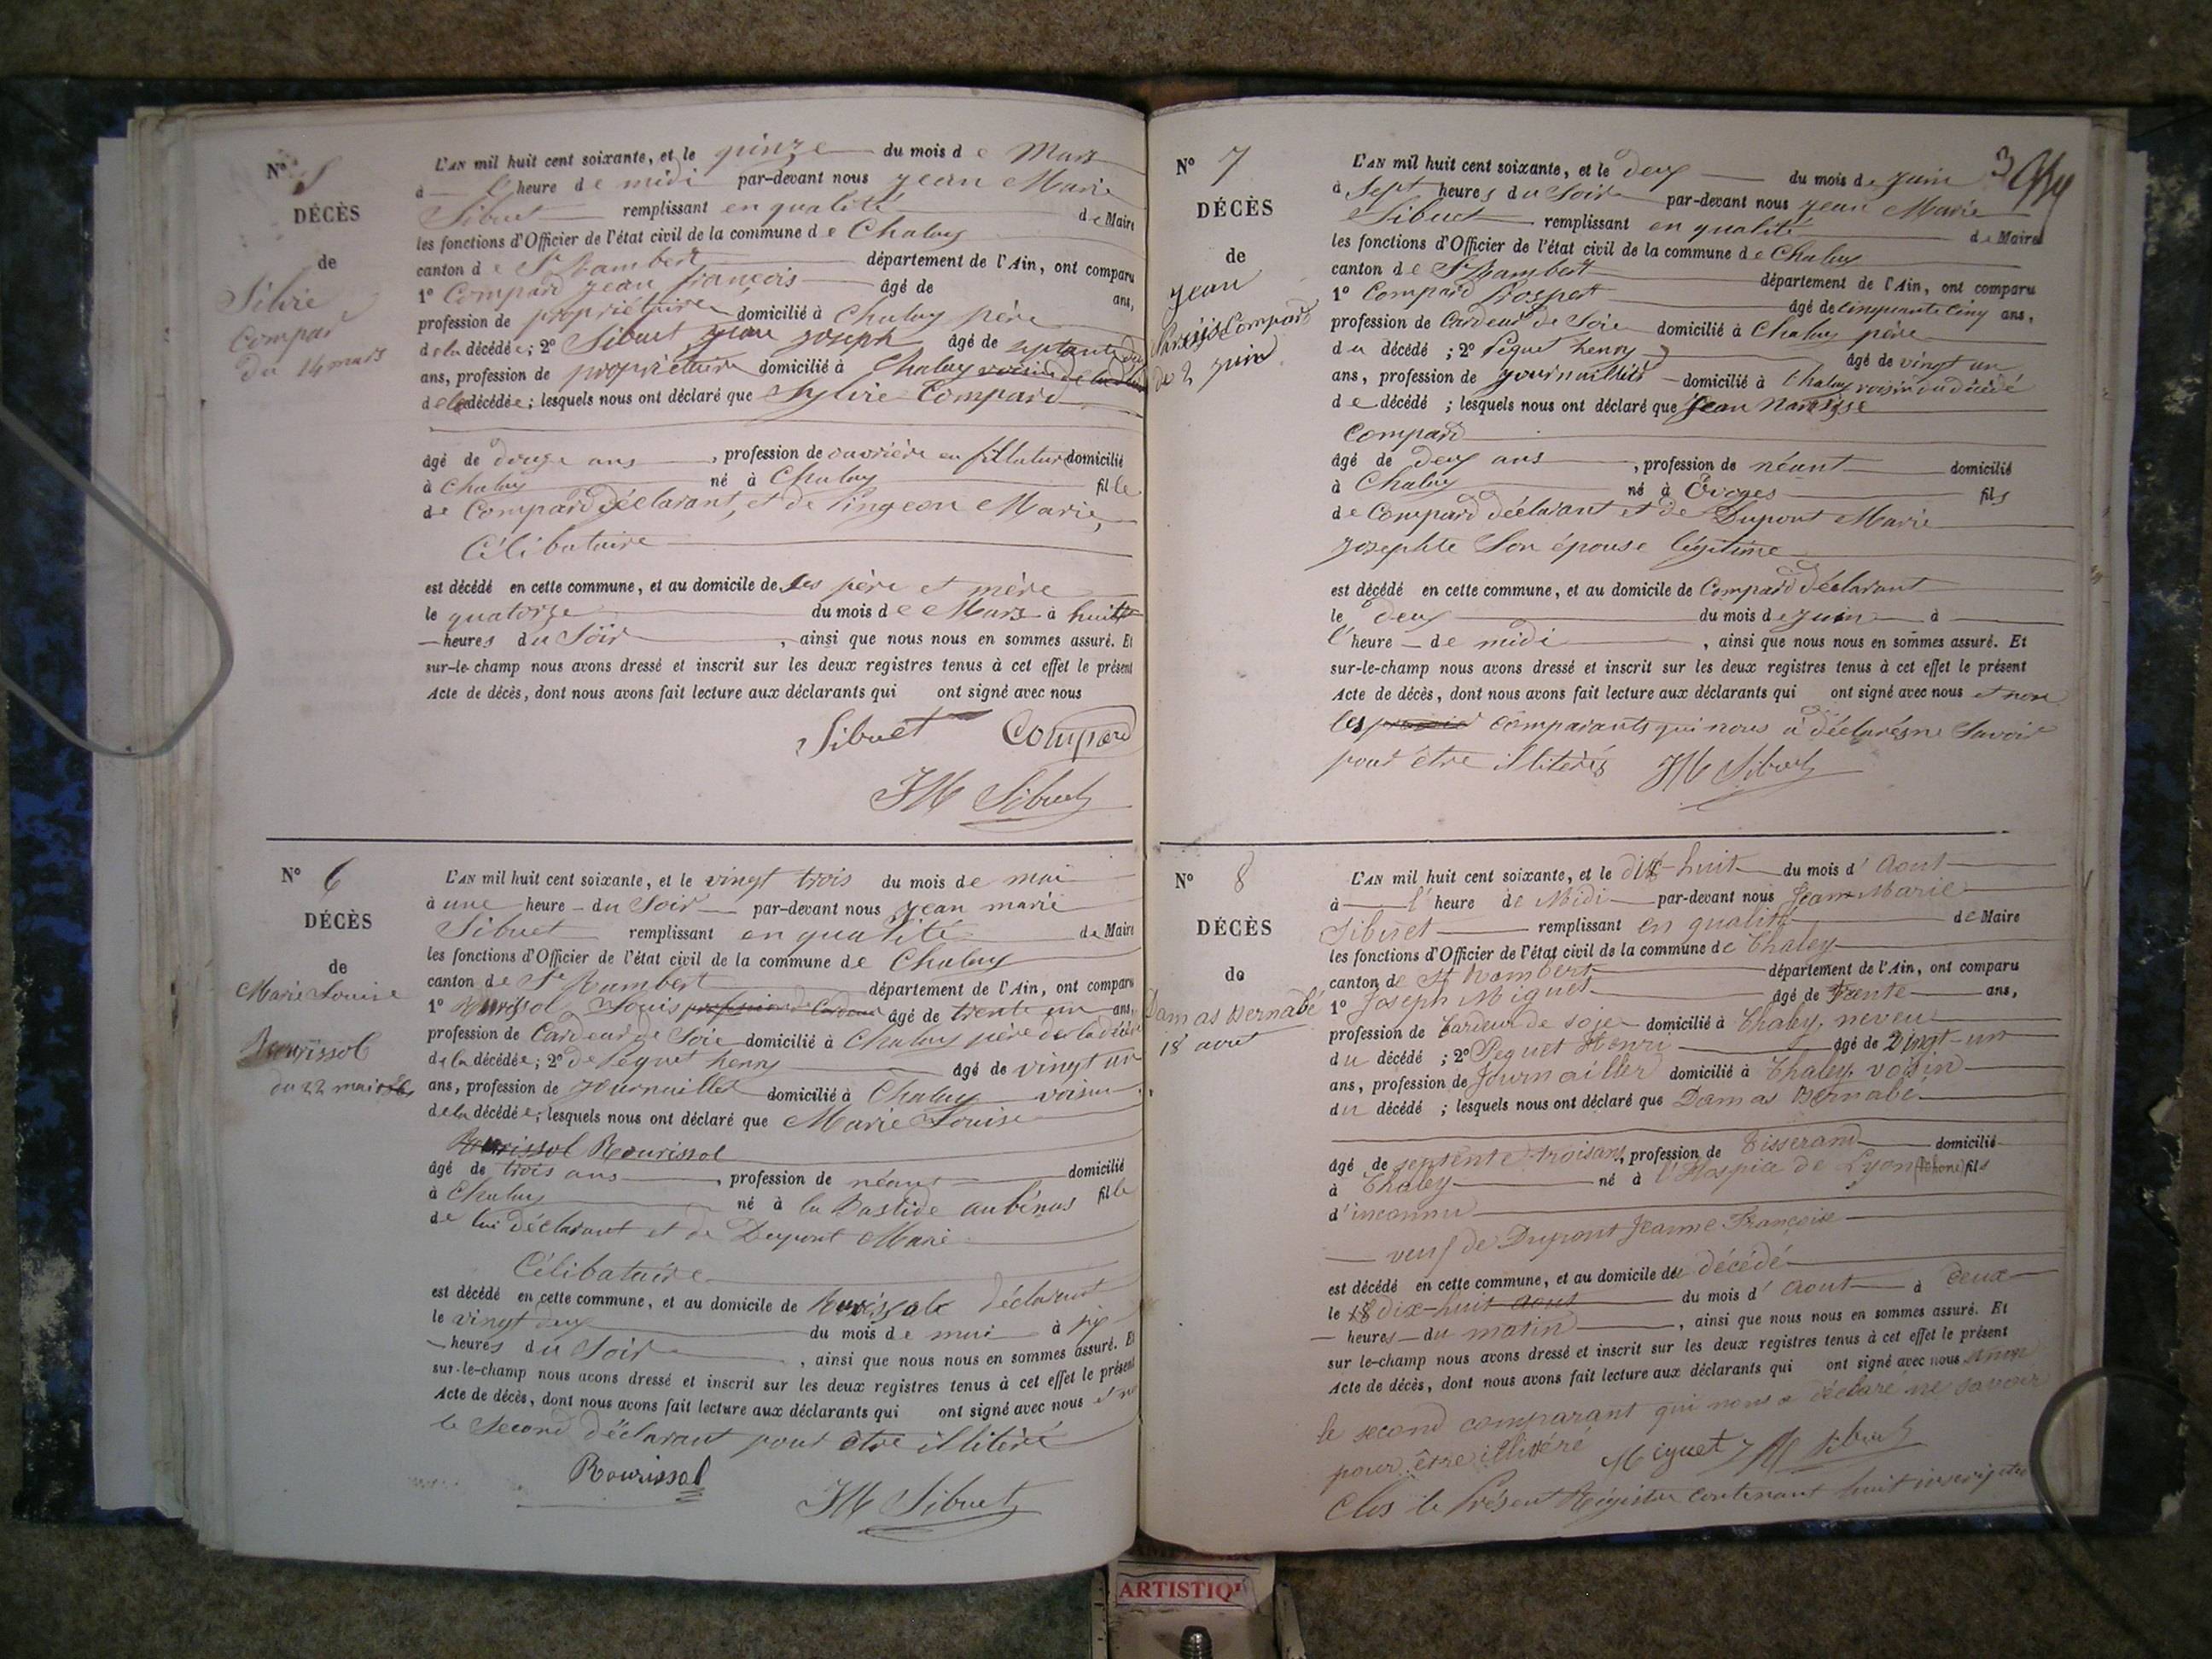 N° 5
DÉCÈS
de
Silvie
Compar
du 14 mars
L'AN mil huit cent soixante, et le quinze du mois de Mars
à l'heure de midi par-devant nous Jean Marie
Sibuet remplissant en qualité de Maire
les fonctions d'Officier de l'état civil de la commune de Chaley
canton de St Rambert département de l'Ain, ont comparu
1° Compard Jean françois âgé de ans,
profession de propriétaire domicilié à Chaley père
de la décédée; 2° Sibuet Jean Joseph âgé de septante
ans, profession de propriétaire domicilié à Chaley voisin
de la décédée; lesquels nous ont déclaré que Sylvie Compard
âgé de douze ans, profession de ouvrière en fillature domicilié
à Chaley né à Chaley fille
de Compard déclarant, et de Pingeon Marie,
Célibataire
est décédé en cette commune, et au domicile de ses père et mère
le quatorze du mois de Mars à huit
heures du Soir, ainsi que nous nous en sommes assuré. Et
sur-le-champ nous avons dressé et inscrit sur les deux registres tenus à cet effet le présent
Acte de décès, dont nous avons fait lecture aux déclarants qui ont signé avec nous
Sibuet Compard
JM Sibuet
N° 6
DÉCÈS
de
Marie Louise
Rourissol
du 22 mai
L'AN mil huit cent soixante, et le vingt trois du mois de mai
à une heure du Soir par-devant nous Jean marie
Sibuet remplissant en qualité de Maire
les fonctions d'Officier de l'état civil de la commune de Chaley
canton de St Rambert département de l'Ain, ont comparu
1° Rourissol Louis âgé de trente un ans,
profession de Cardeur de Soie domicilié à Chaley père de la
de la décédée; 2° de Peguet henry âgé de vingt un
ans, profession de Journaillier domicilié à Chaley voisin
de la décédée; lesquels nous ont déclaré que Marie Louise
Rourissol Rourissol
âgé de trois ans, profession de néant domicilié
à Chaley né à la Bastide aubénas fille
de lui déclarant et de Dupont Marie
Célibataire
est décédé en cette commune, et au domicile de déclarant
le vingt deux du mois de mai à six
heures du Soir, ainsi que nous nous en sommes assuré. Et
sur-le-champ nous avons dressé et inscrit sur les deux registres tenus à cet effet le présent
Acte de décès, dont nous avons fait lecture aux déclarants qui ont signé avec nous et non
le Second déclarant pour être illitéré
Rourissol
JM Sibuet
3
N° 7
DÉCÈS
de
Jean
Compard
du 2 juin
L'AN mil huit cent soixante, et le deux du mois de Juin
à Sept heures du Soir par-devant nous Jean Marie
Sibuet remplissant en qualité de Maire
les fonctions d'Officier de l'état civil de la commune de Chaley
canton de St Rambert département de l'Ain, ont comparu
1° Compard Prospert âgé de cinquante cinq ans,
profession de Cardeur de Soie domicilié à Chaley père
du décédé; 2° Peguet henry âgé de vingt un
ans, profession de journaillier domicilié à Chaley voisin du décédé
de décédé; lesquels nous ont déclaré que Jean Narsisse
Compard
âgé de deux ans, profession de néant domicilié
à Chaley né à Evoges fils
de Compard déclarant et de Dupont Marie
Josephte Son épouse légitime
est décédé en cette commune, et au domicile de Compard déclarant
le deux du mois de Juin à
l'heure de midi, ainsi que nous nous en sommes assuré. Et
sur-le-champ nous avons dressé et inscrit sur les deux registres tenus à cet effet le présent
Acte de décès, dont nous avons fait lecture aux déclarants qui ont signé avec nous et non
les comparants qui nous à déclarés ne Savoir
pour être illiterés JM Sibuet
N° 8
DÉCÈS
de
Damas Bernabé
18 aout
L'AN mil huit cent soixante, et le dix-huit du mois d'Aout
à l'heure de Midi par-devant nous Jean Marie
Sibuet remplissant en qualité de Maire
les fonctions d'Officier de l'état civil de la commune de Chaley
canton de St Rambert département de l'Ain, ont comparu
1° Joseph Miguet âgé de Trente ans,
profession de Cardeur de soie domicilié à Chaley, neveu
du décédé; 2° Peguet Henri âgé de Vingt-un
ans, profession de Journailler domicilié à Chaley, voisin
du décédé; lesquels nous ont déclaré que Damas Bernabé
âgé de septente trois ans, profession de Tisserand domicilié
à Chaley né à l'Hospice de Lyon (Rhone) fils
d'inconnu
veuf de Dupont Jeanne Françoise
est décédé en cette commune, et au domicile du décédé
le 18 dix-huit aout du mois d'Aout à deux
heures du matin, ainsi que nous nous en sommes assuré. Et
sur le-champ nous avons dressé et inscrit sur les deux registres tenus à cet effet le présent
Acte de décès, dont nous avons fait lecture aux déclarants qui ont signé avec nous et non
le second comparant qui nous a déclaré ne savoir
pour être illitéré Miguet JM Sibuet
Clos le Présent Régistre contenant huit inscriptions
ARTISTIQ